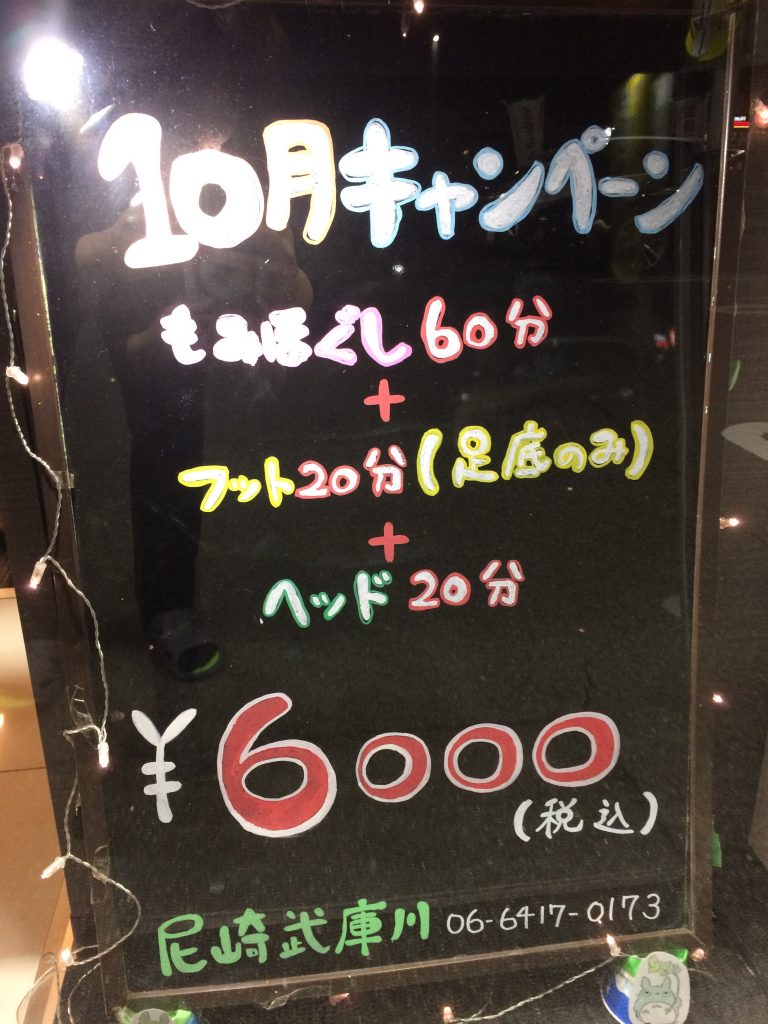 10月キャンペーン
もみほぐし60分
+
フット20分(足底のみ)
+
ヘッド 20分
¥6000
(税込)
尼崎武庫川 06-6417-0173